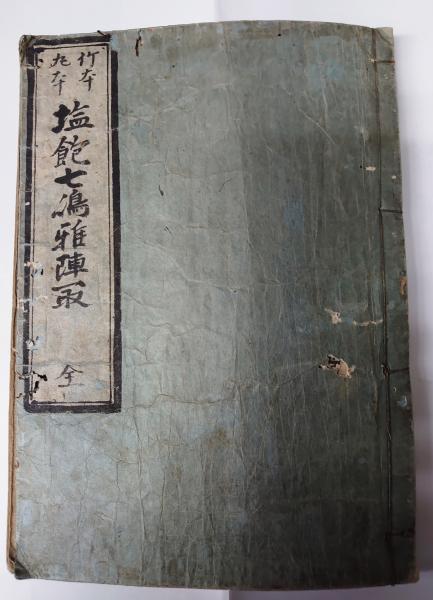 竹本
丸本
塩飽七嶋雅陣取
全